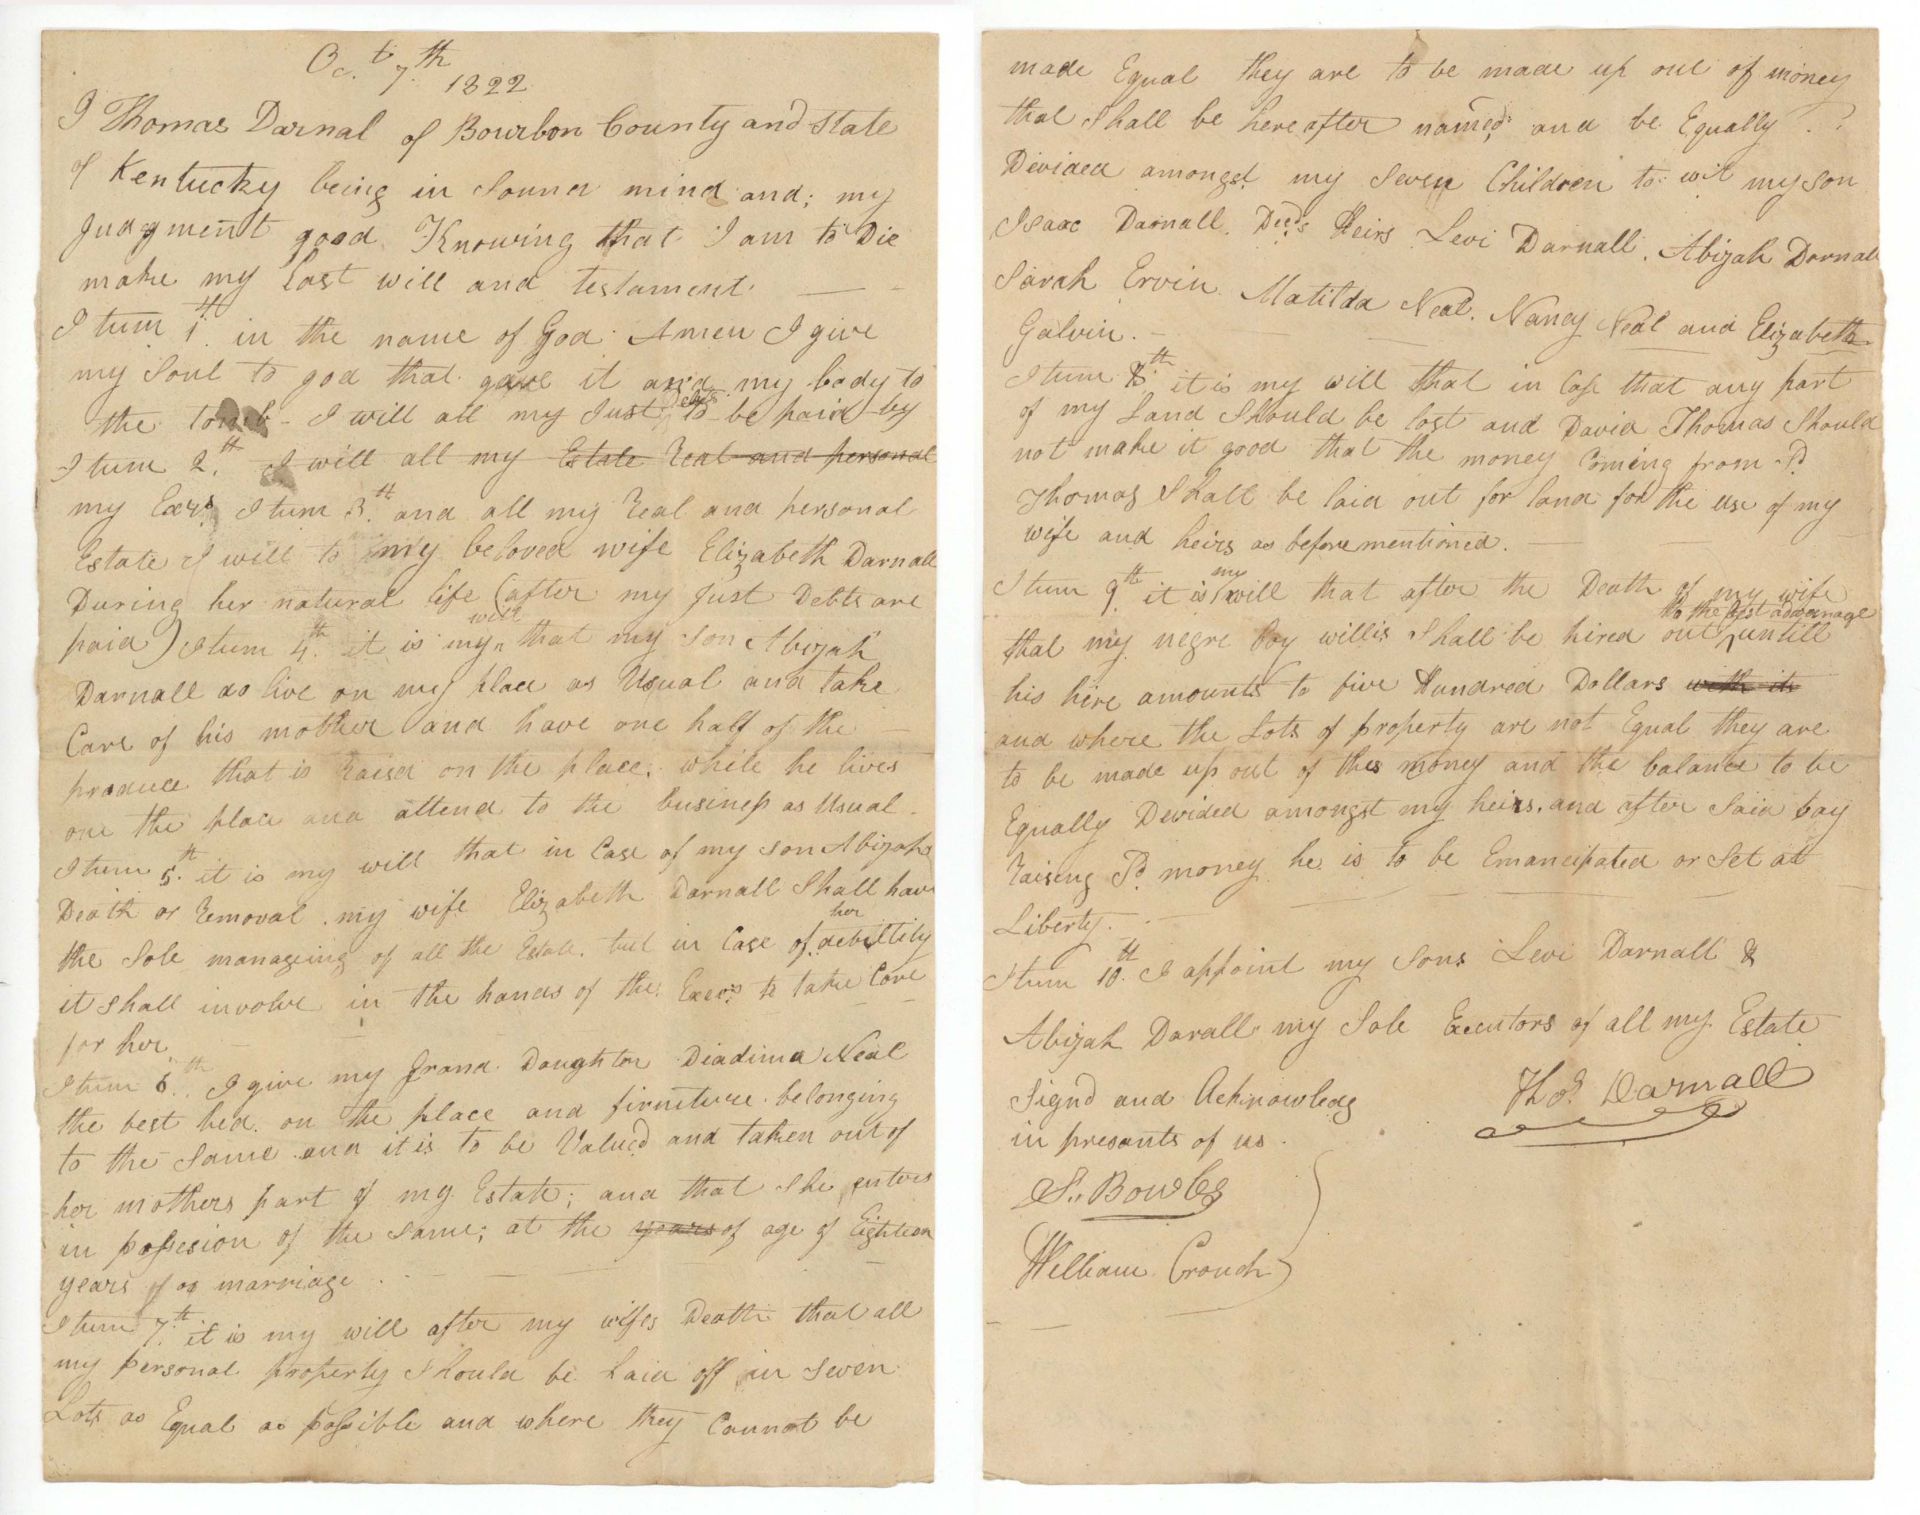 Oct. 7th 1822
I Thomas Darnal of Bourbon County and State
of Kentucky being in Sound mind and; my
Judgment good Knowing that I am to Die
make my Last will and testament.
Itum 1st. in the name of God Amen I give
my Soul to god that gave it and my body to
the tomb - I will all my Just Debts to be paid by
Itum 2th. I will all my Estate Real and personal
my Exrs. Itum 3th. and all my Real and personal
Estate I will to my beloved wife Elizabeth Darnall
During her natural life (after my Just Debts are
paid) Itum 4th. it is my will that my Son Abijah
Darnall do live on my place as Usual and take
Care of his mother and have one half of the
produce that is Raisd on the place, while he lives
one the place and attend to the business as Usual.
Itum 5th. it is my will that in Case of my Son Abijahs
Death or Removal my wife Elizabeth Darnall Shall have
the Sole manageing of all the Estate. but in Case of her debility
it shall involve in the hands of the Exers. to take Care
for her
Itum 6th. I give my Grand Daughter Diadima Neal
the best bed on the place and firniture belonging
to the Same and it is to be Valued and taken out of
her mothers part of my Estate; and that She enters
in possesion of the Same; at the years of age of Eighteen
years or marriage.
Itum 7th. it is my will after my wifes Death that all
my personal property Should be Laid off in Seven
Lots as Equal as possible and where they Cannot be
made Equal they are to be made up out of money
that Shall be here after named and be Equally
Devided amongst my Seven Children to wit my Son
Isaac Darnall Decd.s Heirs Levi Darnall, Abijah Darnall
Sarah Ervin Matilda Neal, Nancy Neal and Elizabeth
Galvin.
Itum 8th. it is my will that in Case that any part
of my Land Should be lost and David Thomas Should
not make it good that the money Coming from Sd.
Thomas Shall be laid out for land for the use of my
wife and heirs as before mentioned.
Itum 9th it is my will that after the Death of my wife
that my negre boy willis Shall be hired out to the best advantage untill
his hire amounts to five Hundred Dollars with it
and where the Lots of property are not Equal they are
to be made up out of this money and the balance to be
Equally Devided amongst my heirs, and after Said boy
Raising Sd. money he is to be Emancipated or Set at
Liberty.
Itum 10th. I appoint my Sons Levi Darnall &
Abijah Darall my Sole Executors of all my Estate
Signd and Acknowledg
Thos. Darnall
in presents of us.
S. Bowles
William Crouch